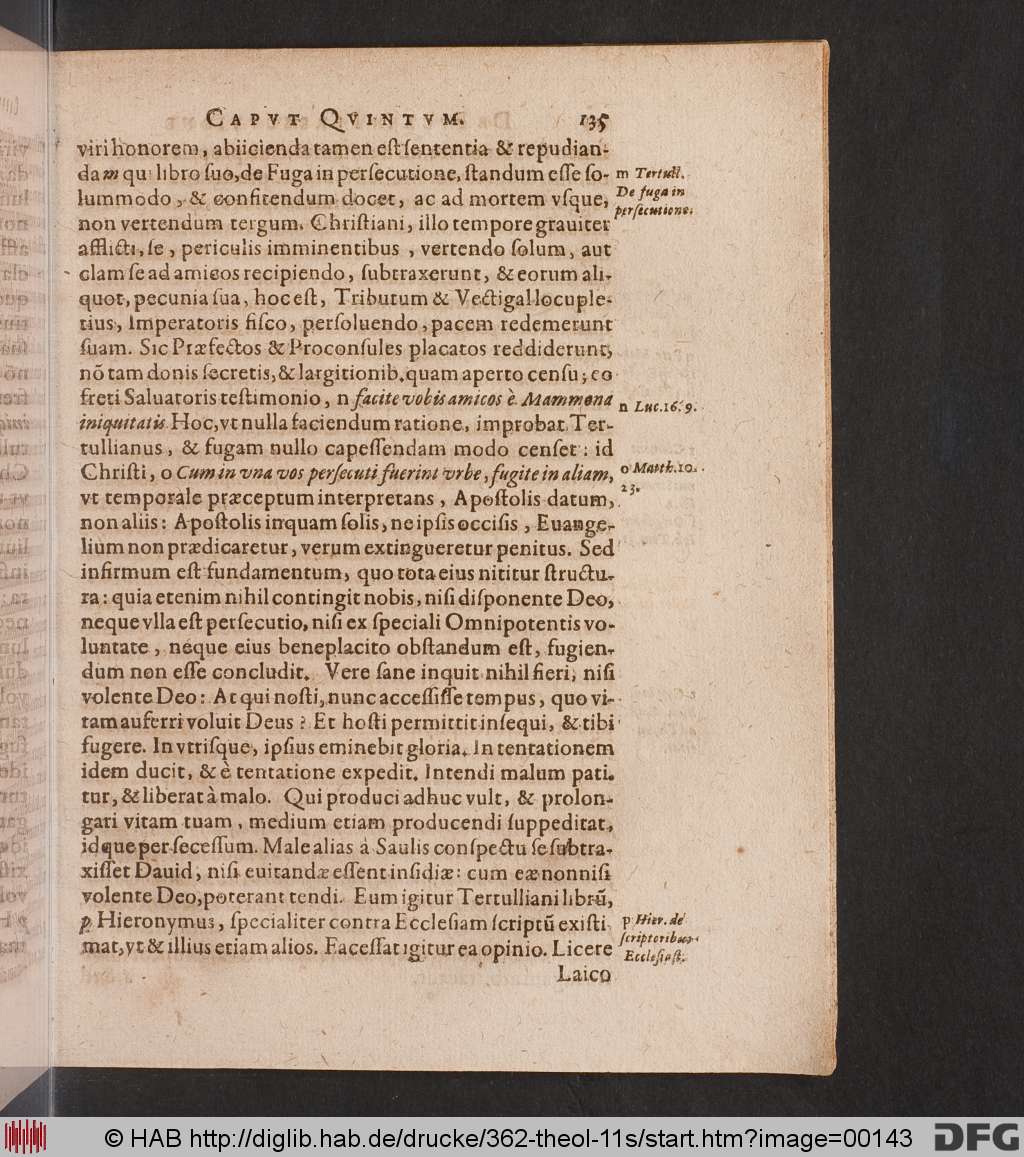 CAPVT QVINTVM. 135
viri honorem, abiicienda tamen est sententia & repudian-
da m qui libro suo, de Fuga in persecutione, standum esse so-
lummodo, & confitendum docet, ac ad mortem vsque,
non vertendum tergum. Christiani, illo tempore grauiter
afflicti, se, periculis imminentibus, vertendo solum, aut
clam se ad amicos recipiendo, subtraxerunt, & eorum ali-
quot, pecunia sua, hoc est, Tributum & Vectigal locuple-
tius, Imperatoris fisco, persoluendo, pacem redemerunt
suam. Sic Præfectos & Proconsules placatos reddiderunt,
nõ tam donis secretis, & largitionib. quam aperto censu; co
freti Saluatoris testimonio, n facite vobis amicos è Mammona
iniquitatis. Hoc, vt nulla faciendum ratione, improbat Ter-
tullianus, & fugam nullo capessendam modo censet: id
Christi, o Cum in vna vos persecuti fuerint vrbe, fugite in aliam,
vt temporale præceptum interpretans, Apostolis datum,
non aliis: Apostolis inquam solis, ne ipsis occisis, Euange-
lium non prædicaretur, verum extingueretur penitus. Sed
infirmum est fundamentum, quo tota eius nititur structu-
ra: quia etenim nihil contingit nobis, nisi disponente Deo,
neque vlla est persecutio, nisi ex speciali Omnipotentis vo-
luntate, neque eius beneplacito obstandum est, fugien-
dum non esse concludit. Vere sane inquit nihil fieri, nisi
volente Deo: At qui nosti, nunc accessisse tempus, quo vi-
tam auferri voluit Deus? Et hosti permittit insequi, & tibi
fugere. In vtrisque, ipsius eminebit gloria. In tentationem
idem ducit, & è tentatione expedit. Intendi malum pati-
tur, & liberat à malo. Qui produci adhuc vult, & prolon-
gari vitam tuam, medium etiam producendi suppeditat,
idque per secessum. Male alias à Saulis conspectu se subtra-
xisset Dauid, nisi euitandæ essent insidiæ: cum eæ non nisi
volente Deo, poterant tendi. Eum igitur Tertulliani librũ,
p Hieronymus, specialiter contra Ecclesiam scriptũ existi-
mat, vt & illius etiam alios. Facessat igitur ea opinio. Licere
Laico
m Tertull.
De fuga in
persecutione.
n Luc. 16. 9.
o Matth. 10.
23.
p Hier. de
scriptoribus
Ecclesiast.
© HAB http://diglib.hab.de/drucke/362-theol-11s/start.htm?image=00143 DFG